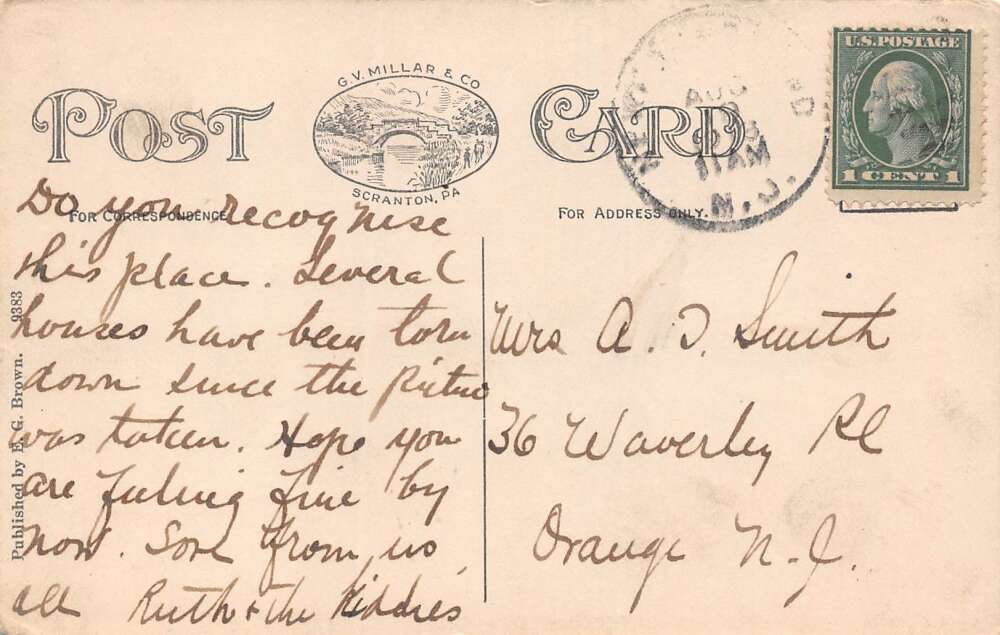 POST CARD
G.V. MILLAR & CO
SCRANTON, PA
FOR CORRESPONDENCE
FOR ADDRESS ONLY.
AUG
11 AM
N.J.
U.S. POSTAGE
1 CENT 1
Do you recognise
this place. Several
houses have been torn
down since the Picture
was taken. Hope you
are feeling fine by
now. Love from us
all Ruth & the Kiddies
Mrs A. D. Smith
36 Waverley Pl
Orange N.J.
Published by E. G. Brown. 9383